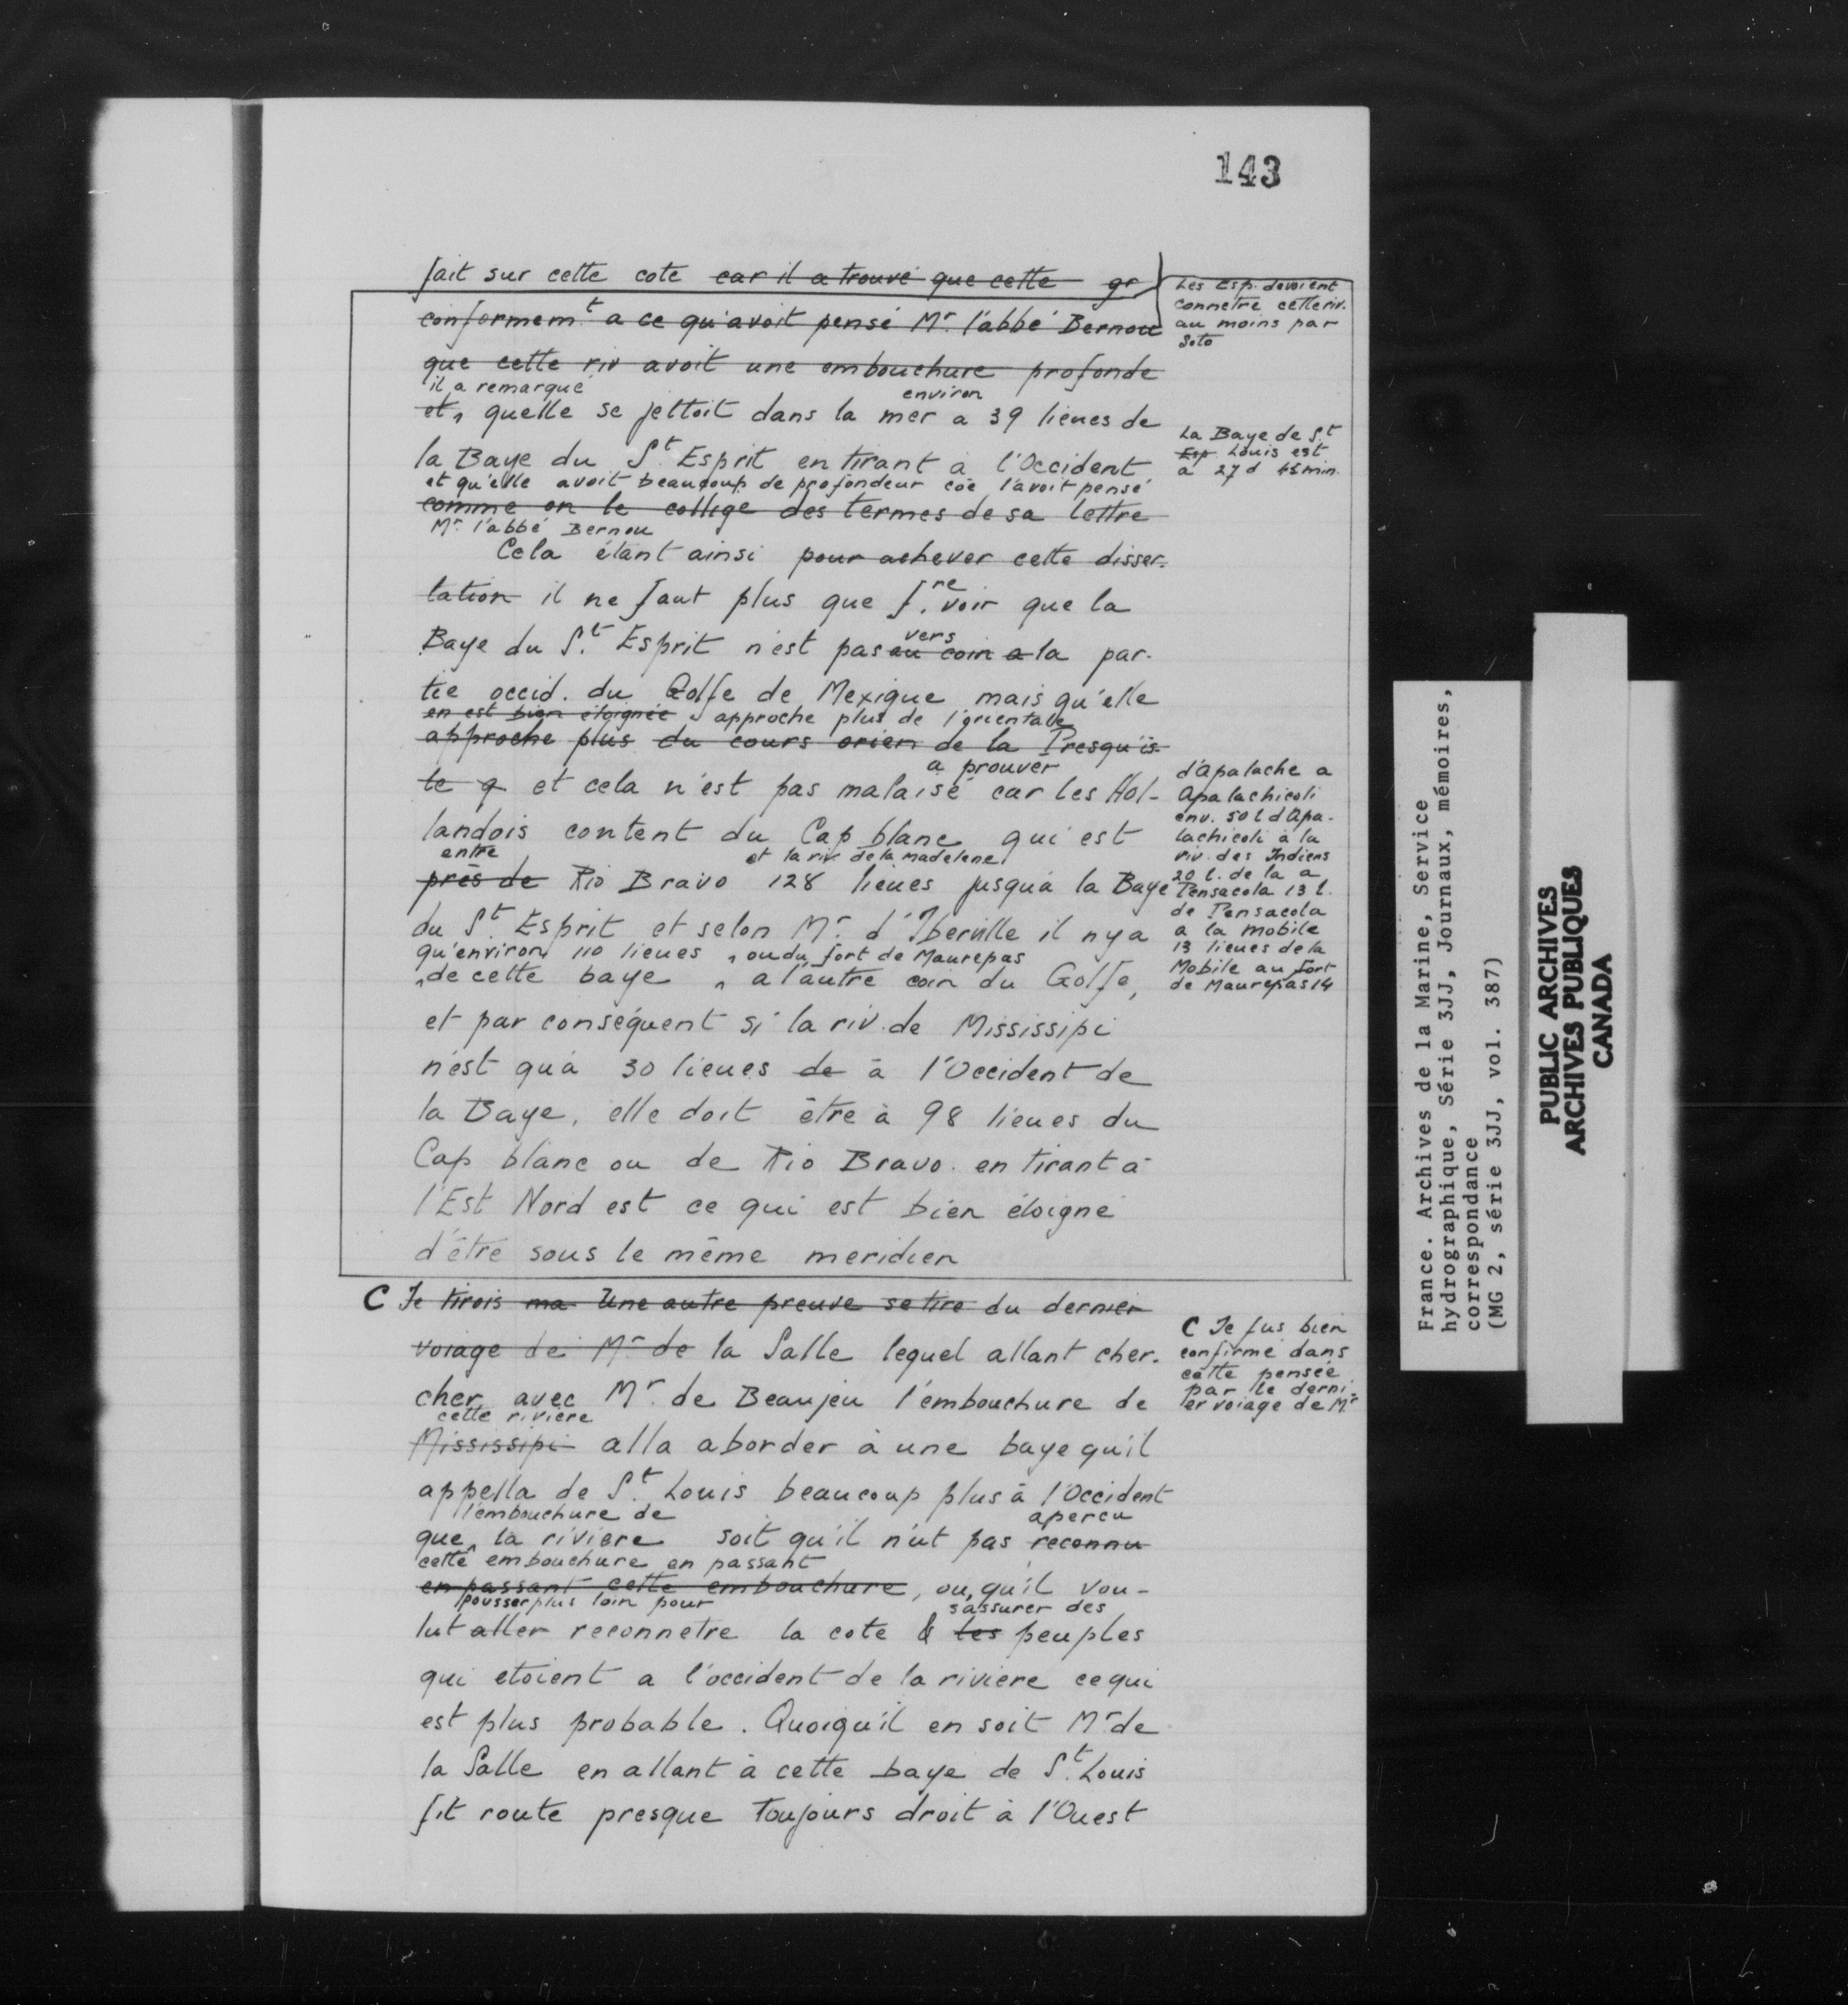 143
fait sur cette cote car il a trouvé que cette gr
conformemt a ce qu'avoit pensé Mr l'abbé Bernou
que cette riv avoit une embouchure profonde
il a remarqué environ
et, quelle se jettoit dans la mer a 39 lieues de
la Baye du St Esprit en tirant à l'Occident
et qu'elle avoit beaucoup de profondeur cõe l'avoit pensé
comme on le collige des termes de sa lettre
Mr. l'abbé Bernou
Cela étant ainsi pour achever cette disser-
tation il ne faut plus que f.re voir que la
Baye du St. Esprit n'est pas au coin a la par-
vers
tie occid. du Golfe de Mexique mais qu'elle
en est bien éloignée approche plus de l'orientale
approche plus du cours orien de la Presqu'is-
a prouver
le q et cela n'est pas malaisé car les Hol-
landois content du Cap blanc qui est
entre et la riv. de la madelene
près de Rio Bravo 128 lieues jusqu'à la Baye
du St. Esprit et selon Mr. d'Iberville il n'y a
qu'environ 110 lieues ou du fort de Maurepas
de cette baye a l'autre coin du Golfe,
et par conséquent si la riv. de Mississipi
n'est qu'à 30 lieues de à l'Occident de
la Baye, elle doit être à 98 lieues du
Cap blanc ou de Rio Bravo en tirant à
l'Est Nord est ce qui est bien éloigné
d'être sous le même meridien
C Je tirois ma Une autre preuve se tire du dernier
voiage de Mr de la Salle lequel allant cher-
cher avec Mr. de Beaujeu l'embouchure de
cette rivière
Mississipi alla aborder à une baye qu'il
appella de St. Louis beaucoup plus à l'Occident
l'embouchure de apercu
que la riviere soit qu'il n'ut pas reconnu
cette embouchure en passant
en passant cette embouchure, ou qu'il vou-
pousser plus loin pour s'assurer des
lut aller reconnetre la cote & les peuples
qui etoient a l'occident de la riviere ce qui
est plus probable. Quoiqu'il en soit Mr de
la Salle en allant à cette baye de St. Louis
fit route presque toujours droit à l'Ouest
Les Esp. devoient
connetre cette riv.
au moins par
Soto
La Baye de St.
Esp Louis est
a 27 d 45 min.
d'Apalache a
Apalachicoli
env. 50 l d'Apa-
lachicoli à la
riv. des Indiens
20 l. de la a
Pensacola 13 l.
de Pensacola
a la mobile
13 lieues de la
Mobile au fort
de Maurepas 14
C Je fus bien
confirmé dans
cette pensée
par le derni-
er voiage de Mr
France. Archives de la Marine, Service
hydrographique, Série 3JJ, Journaux, mémoires,
correspondance
(MG 2, série 3JJ, vol. 387)
PUBLIC ARCHIVES
ARCHIVES PUBLIQUES
CANADA